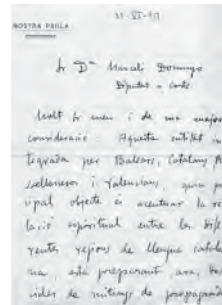 31-VI-19
NOSTRA PARLA
Sr Dn Marcelí Domingo
Diputat a Corts
Molt Sr meu i de ma major
consideració: Aquesta entitat in
tegrada per Balears, Catalans, Ro
sellonesos i Valencians, quin prin
cipal objecte és acentuar la re
lació espiritual entre les dife
rentes regions de llengua catala
na està preparant ara, 
de mitings de propaganda